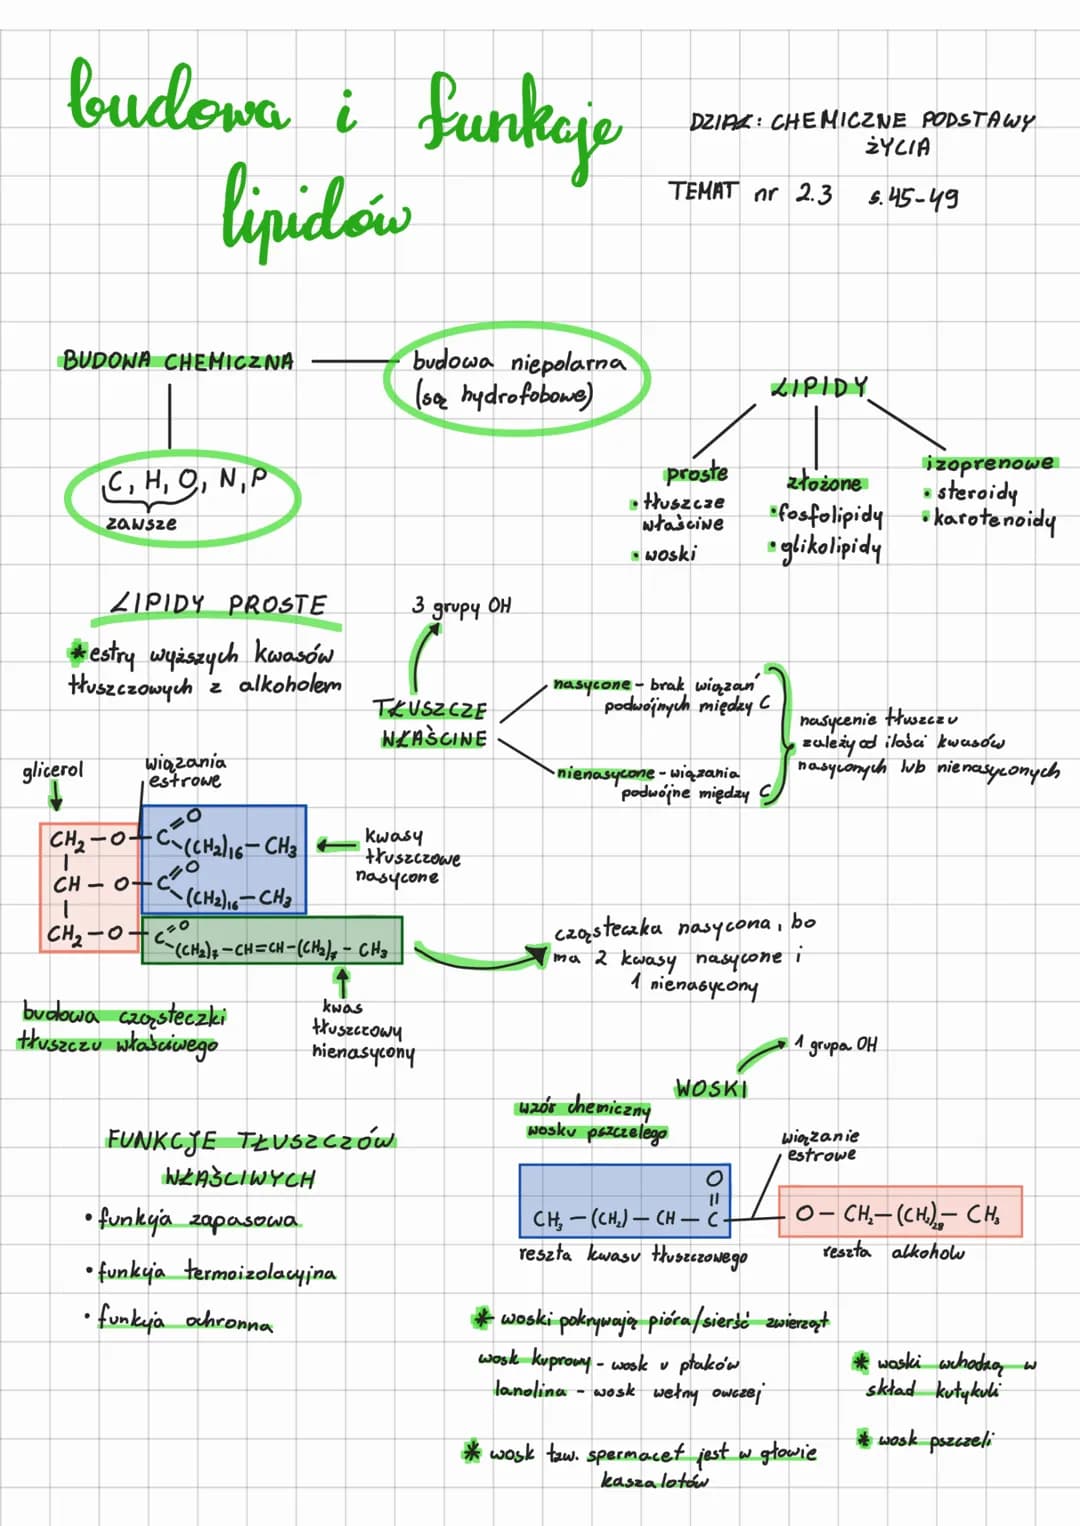 budowa i funkcje
lipidów
DZIAŁ: CHEMICZNE PODSTAWY
ŻYCIA
TEMAT nr 2.3 s. 45-49
BUDOWA CHEMICZNA
budowa niepolarna
(są hydrofobowe)
C, H, O, N, P
zawsze
LIPIDY
proste
• tłuszcze
właściwe
• woski
złożone
• fosfolipidy
• glikolipidy
izoprenowe
• steroidy
• karotenoidy
LIPIDY PROSTE
* estry wyższych kwasów
tłuszczowych z alkoholem
3 grupy OH
TŁUSZCZE
WŁAŚCINE
nasycone - brak wiązań
podwójnych między C
nienasycone - wiązania
podwójne między C
nasycenie tłuszczu
zależy od ilości kwasów
nasyconych lub nienasyconych
glicerol
wiązania
estrowe
CH2 - O - C =O -(CH2)16 - CH3
CH - O - C =O -(CH2)16 - CH3
CH2 - O - C =O -(CH2)7 - CH=CH-(CH2)7 - CH3
kwasy
tłuszczowe
nasycone
cząsteczka nasycona, bo
ma 2 kwasy nasycone i
1 nienasycony
budowa cząsteczki
tłuszczu właściwego
kwas
tłuszczowy
nienasycony
WOSKI
1 grupa OH
wzór chemiczny
wosku pszczelego
wiązanie
estrowe
O
CH3 - (CH2) - CH - C - O - CH2 - (CH2)28 - CH3
reszta kwasu tłuszczowego
reszta alkoholu
FUNKCJE TŁUSZCZÓW
WŁAŚCIWYCH
• funkcja zapasowa
• funkcja termoizolacyjna
• funkcja ochronna
* woski pokrywają pióra/sierść zwierząt
wosk kuprowy - wosk u ptaków
lanolina - wosk wełny owczej
* wosk tzw. spermacet jest w głowie
kaszalotów
* woski wchodzą w
skład kutykuli
* wosk pszczeli